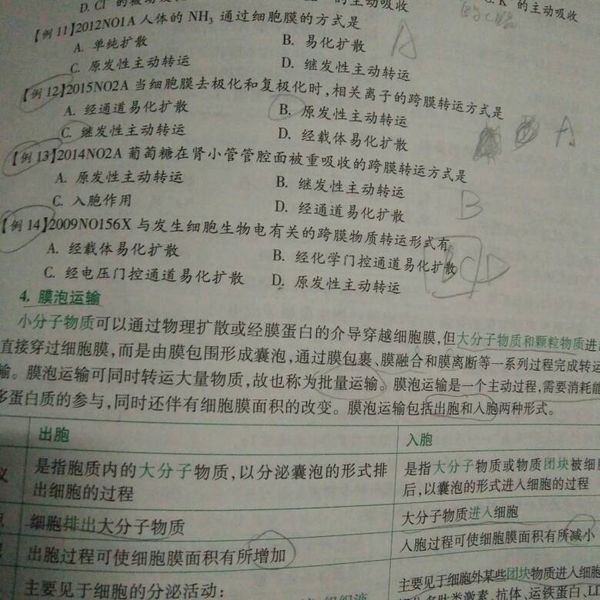 D. Cl⁻
主动吸收
K⁺ 的主动吸收
【例 11】2012NO1A 人体的 NH₃ 通过细胞膜的方式是
A. 单纯扩散 B. 易化扩散 A
C. 原发性主动转运 D. 继发性主动转运
【例 12】2015NO2A 当细胞膜去极化和复极化时,相关离子的跨膜转运方式是
A. 经通道易化扩散 B. 原发性主动转运
C. 继发性主动转运 D. 经载体易化扩散 A
【例 13】2014NO2A 葡萄糖在肾小管管腔面被重吸收的跨膜转运方式是
A. 原发性主动转运 B. 继发性主动转运
C. 入胞作用 D. 经通道易化扩散 B
【例 14】2009NO156X 与发生细胞生物电有关的跨膜物质转运形式有
A. 经载体易化扩散 B. 经化学门控通道易化扩散 BCD
C. 经电压门控通道易化扩散 D. 原发性主动转运
4. 膜泡运输
小分子物质可以通过物理扩散或经膜蛋白的介导穿越细胞膜,但大分子物质和颗粒物质
直接穿过细胞膜,而是由膜包围形成囊泡,通过膜包裹、膜融合和膜离断等一系列过程完成转运
输。膜泡运输可同时转运大量物质,故也称为批量运输。膜泡运输是一个主动过程,需要消耗能
多蛋白质的参与,同时还伴有细胞膜面积的改变。膜泡运输包括出胞和入胞两种形式。
出胞 入胞
是指胞质内的大分子物质,以分泌囊泡的形式排 是指大分子物质或物质团块被细
出细胞的过程 后,以囊泡的形式进入细胞的过程
细胞排出大分子物质 大分子物质进入细胞
出胞过程可使细胞膜面积有所增加 入胞过程可使细胞膜面积有所减小
主要见于细胞的分泌活动: 主要见于细胞外某些团块物质进入细胞
多肽类激素、抗体、运铁蛋白、LD